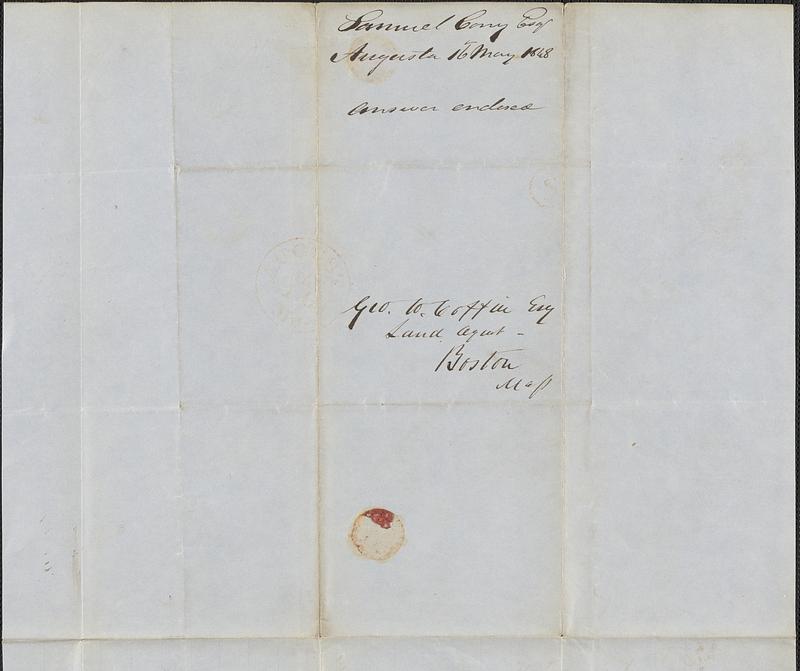 Samuel Cony Esq
Augusta 16 May 1848
answer endorsed
Geo. W. Coffin Esq
Land Agent -
Boston
Mass